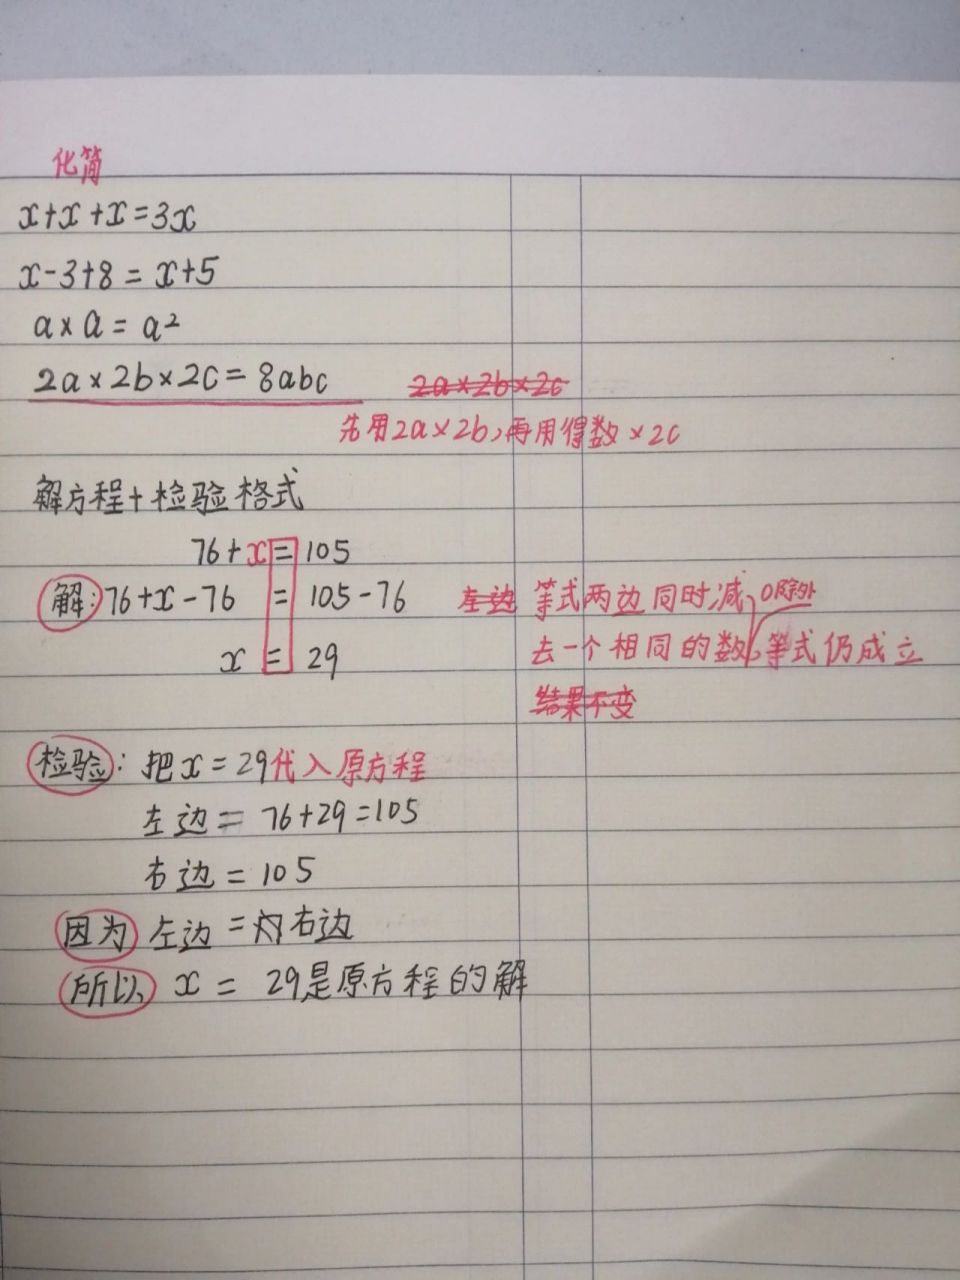 化简
x+x+x=3x
x-3+8=x+5
a×a=a²
2a×2b×2c=8abc 2a×2b×2c
先用2a×2b,再用得数×2c
解方程+检验格式
76+x=105
解:76+x-76=105-76 左边 等式两边同时减 0除外
x=29 去一个相同的数,等式仍成立
结果不变
检验:把x=29代入原方程
左边=76+29=105
右边=105
因为左边=右边
所以x=29是原方程的解